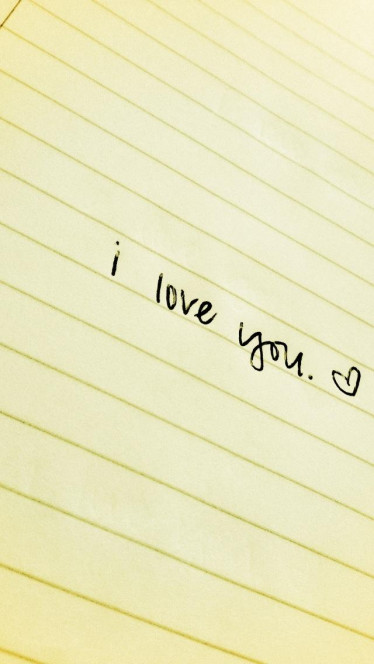 i love you. ♡